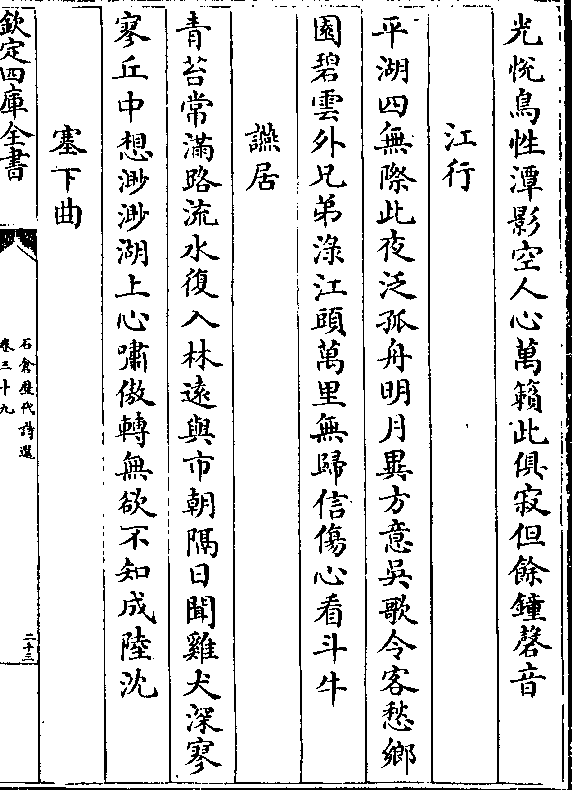 光悅鳥性潭影空人心萬籟此俱寂但餘鐘磬音
江行
平湖四無際此夜泛孤舟明月異方意吳歌令客愁鄉
園碧雲外兄弟淥江頭萬里無歸信傷心看斗牛
讌居
青苔常滿路流水復入林遠與市朝隔日聞雞犬深寥
寥丘中想渺渺湖上心嘯傲轉無欲不知成陸沈
塞下曲
欽定四庫全書
石倉歷代詩選
卷三十九
二十三